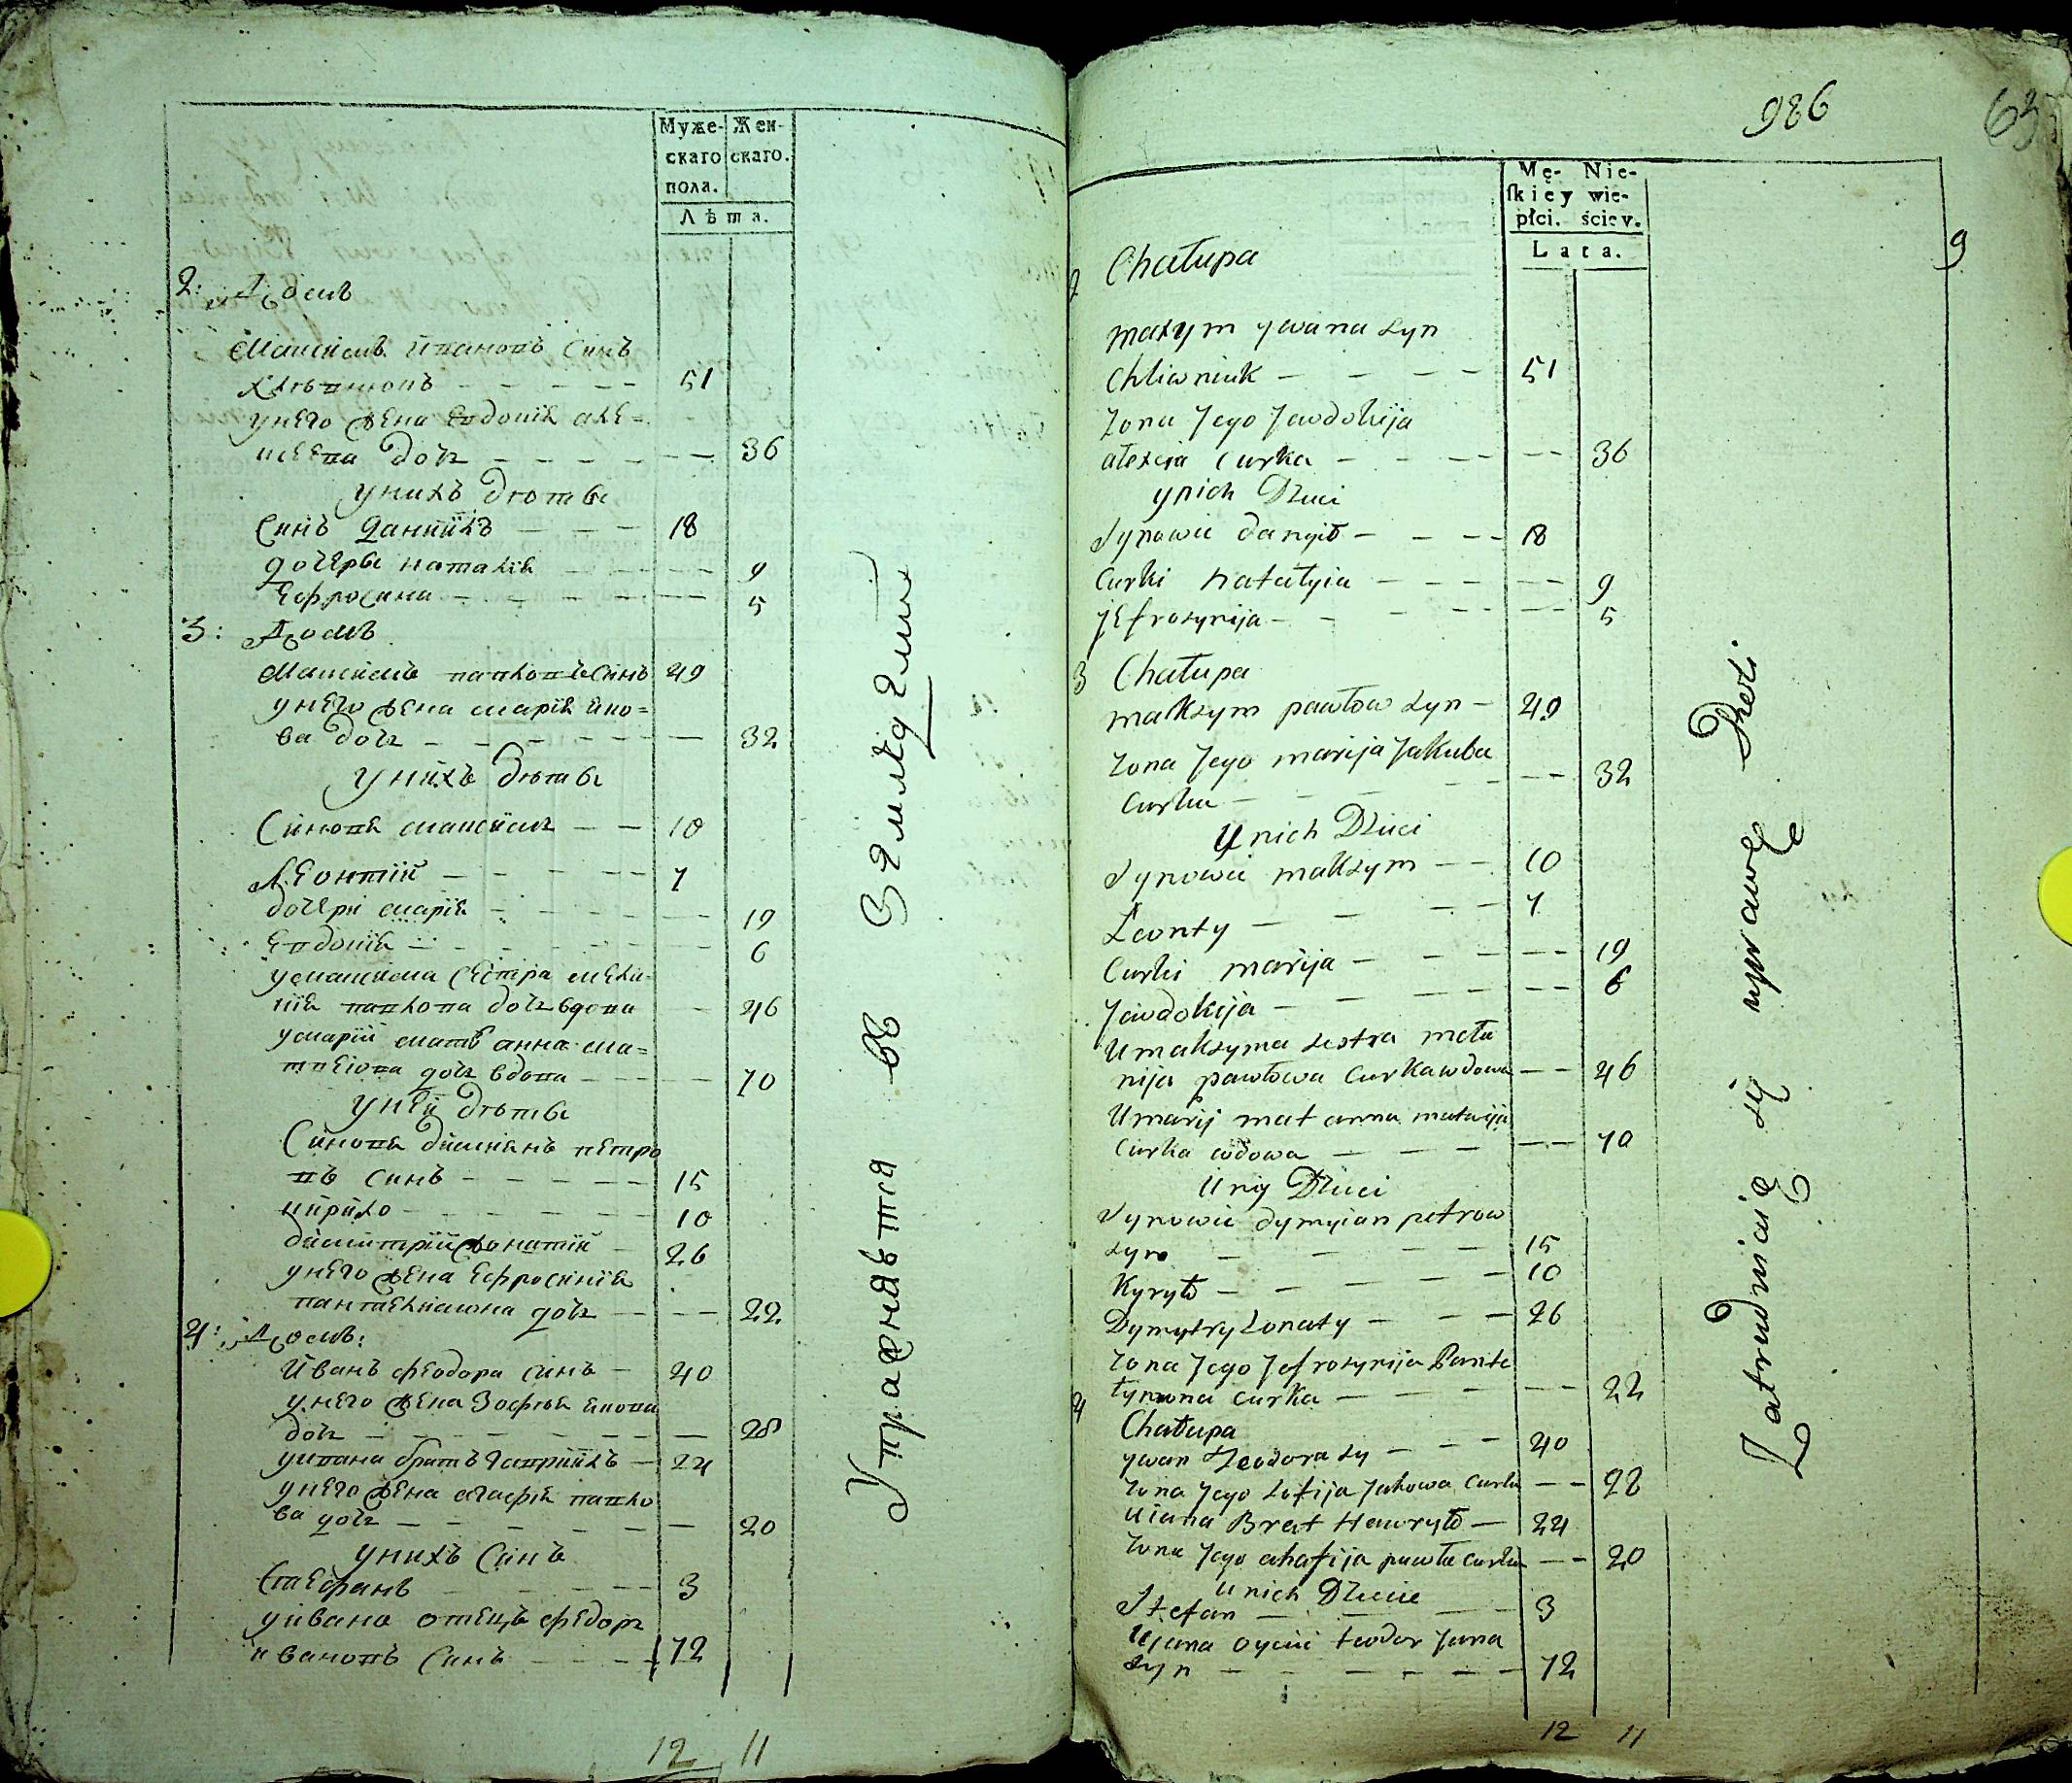 Муже-
скаго
пола.
Жен-
скаго.
Лѣта.
2: Домъ
Максимъ Ивановъ синъ
Хлѣвнюкъ — — — — 51
у него жена Евдокія але=
ксѣева дочь — — — — — 36
у нихъ дѣти
Синъ Даніилъ — — — 18
дочери наталія — — — — 9
Ефросина — — — — — 5
3: Домъ
Максимъ павловъ синъ 49
у него жена марія яко=
ва дочь — — — — — — 32
у нихъ дѣти
Синове максимъ — — 10
Леонтій — — — — — 7
дочери марія — — — — — 19
Евдокія — — — — — — 6
у максима сестра мела-
нія павлова дочь вдова — 46
у маріи мать анна ма=
твеіова дочь вдова — — — 70
у неи дѣти
Синове диміянъ петро
въ синъ — — — — — 15
кирило — — — — — — 10
димитрій игнатій — 26
у него жена Ефросинія
пантелимона дочь — — — 22
4: Домъ:
Иванъ феодора синъ — 40
у него жена Зофія якова
дочь — — — — — — — — 28
у ивана братъ гавриилъ — 24
у него жена агафія павло
ва дочь — — — — — — — 20
у нихъ синъ
Стефанъ — — — — — 3
у ивана отецъ федоръ
ивановъ синъ — — — — 72
12 11
Упражняѣтся въ Земледелии
986
63
9
Mę-
ſkiey
płci.
Nie-
wie-
ściey.
Lata.
2 Chałupa
maxym ywana syn
Chliwniuk — — — — 51
żona Jego Jewdokija
ałexeia curka — — — — — 36
u nich Dzieci
Synowie danyił — — — — 18
Curki natałyia — — — — — 9
jefrosynija — — — — — 5
3 Chałupa
maksym pawłow syn — 49
żona Jego marija Jakuba
curka — — — — — 32
U nich Dzieci
Synowie maksym — — 10
Leonty — — — — 7
Curki marija — — — — — — 19
Jewdokija — — — — — — 6
U maksyma sestra meła
nija pawłowa curka wdowa — — 46
U marij mat anna matwija
curka wdowa — — — — — 70
U niy Dzieci
Synowie dymyian petrow
syn — — — — 15
Kyryło — — — — — 10
Dymytry Ionaty — — — 26
żona Jego Jefrosynija Pante
łymona curka — — — — — — 22
4 Chałupa
ywan Teodora sy — — — 40
żona Jego Zofija Jakowa curka — — 28
U iana Brat Hawryło — 24
żona Jego ahafija pawła curka — — 20
U nich Dziecie
Stefan — — — 3
U jana oyciec teodor Jana
syn — — — — — — 72
12 11
Zatrudniaię się uprawę Roli